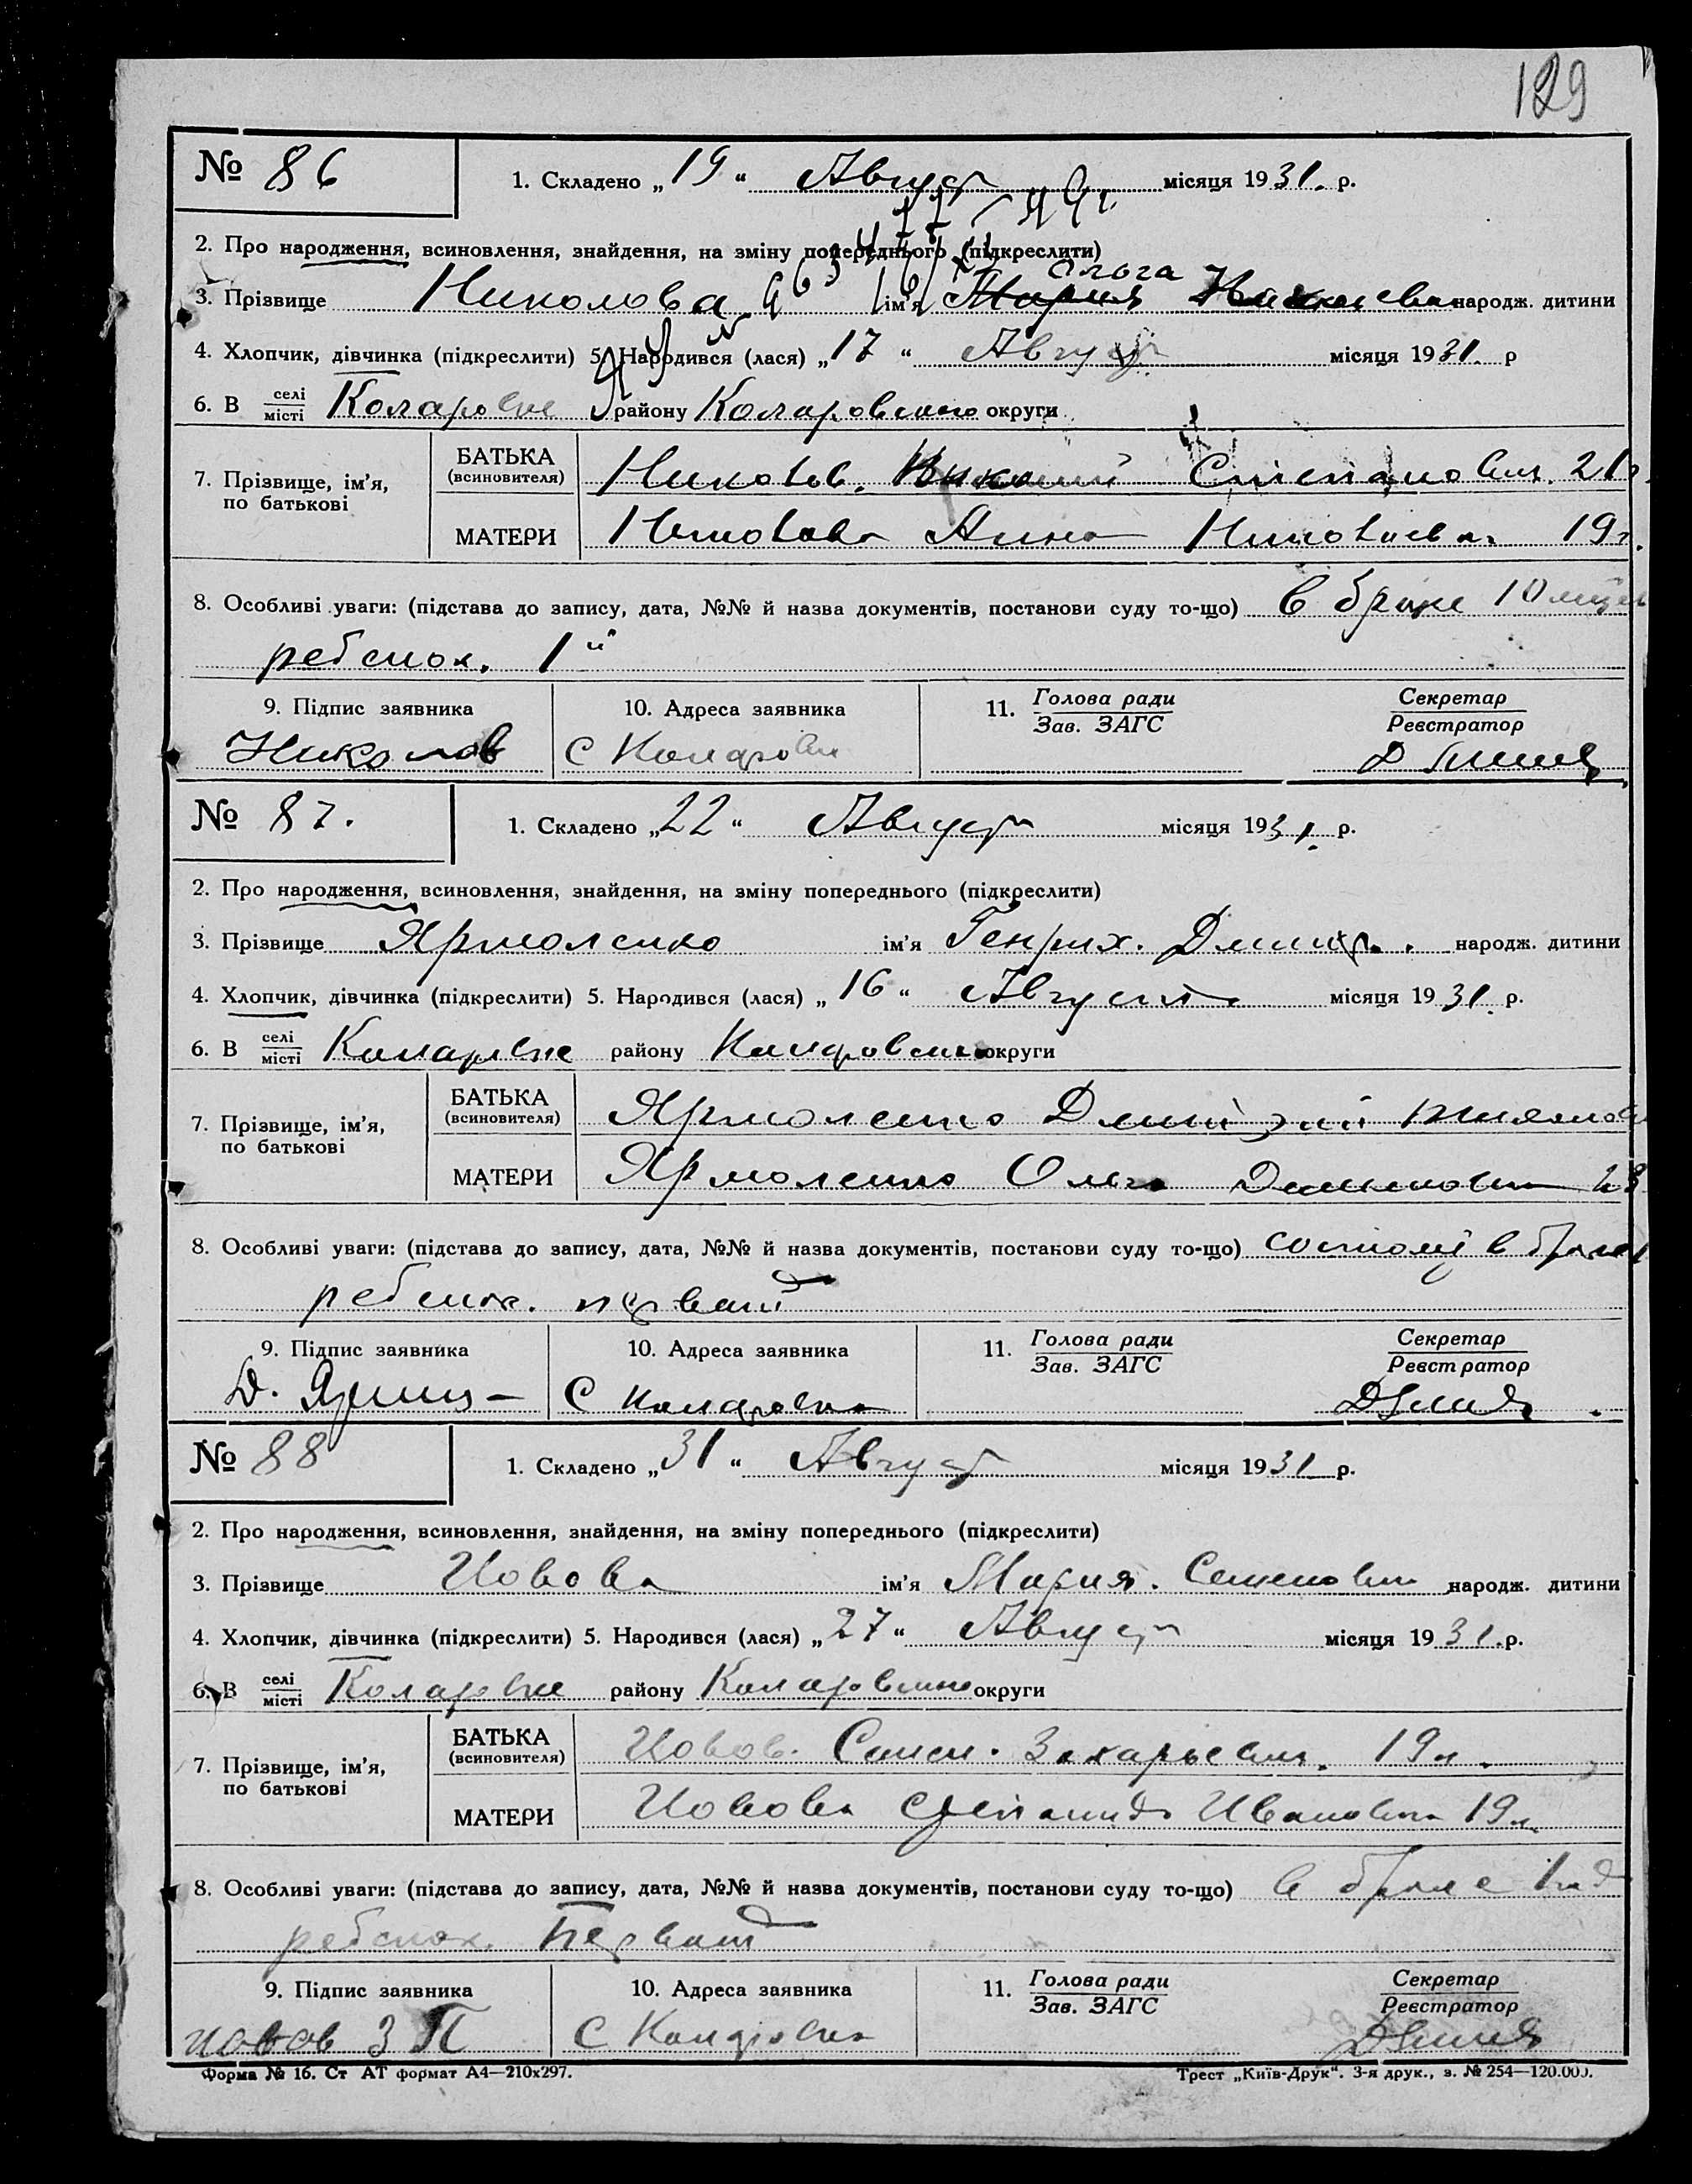 129
№ 86
1. Складено „19“ Август місяця 1931. р.
2. Про народження, всиновлення, знайдення, на зміну попереднього (підкреслити)
Ольга
3. Прізвище Николова ім'я Мария народж. дитини
4. Хлопчик, дівчинка (підкреслити) 5. Народився (лася) „17“ Август місяця 1931. р
6. В селі місті Коларовке району Коларовского округи
7. Прізвище, ім'я, по батькові
БАТЬКА (всиновителя) Николов. Степанович. 21г.
МАТЕРИ Николова Анна Николаевна 19г.
8. Особливі уваги: (підстава до запису, дата, №№ й назва документів, постанови суду то-що) в браке 10
ребенок. 1й
9. Підпис заявника
Николов
10. Адреса заявника
С Коларовка
11. Голова ради
Зав. ЗАГС
Секретар
Реєстратор
№ 87.
1. Складено „22“ Август місяця 1931. р.
2. Про народження, всиновлення, знайдення, на зміну попереднього (підкреслити)
3. Прізвище Ярмоленко ім'я Генрих. Дмитр. народж. дитини
4. Хлопчик, дівчинка (підкреслити) 5. Народився (лася) „16“ Август місяця 1931. р.
6. В селі місті Коларовке району Коларовского округи
7. Прізвище, ім'я, по батькові
БАТЬКА (всиновителя) Ярмоленко Дмитрий
МАТЕРИ Ярмоленко Ольга 23
8. Особливі уваги: (підстава до запису, дата, №№ й назва документів, постанови суду то-що) состоит в браке
ребенок. первый
9. Підпис заявника
10. Адреса заявника
С Коларовка
11. Голова ради
Зав. ЗАГС
Секретар
Реєстратор
№ 88
1. Складено „31“ Август місяця 1931 р.
2. Про народження, всиновлення, знайдення, на зміну попереднього (підкреслити)
3. Прізвище Иовова ім'я Мария. Семеновна народж. дитини
4. Хлопчик, дівчинка (підкреслити) 5. Народився (лася) „27“ Август місяця 1931. р.
6. В селі місті Коларовке району Коларовского округи
7. Прізвище, ім'я, по батькові
БАТЬКА (всиновителя) Иовов. Семен. Захарьевич. 19л.
МАТЕРИ Иовова Степанида Ивановна 19л.
8. Особливі уваги: (підстава до запису, дата, №№ й назва документів, постанови суду то-що) в браке
ребенок. Первый
9. Підпис заявника
Иовов З П
10. Адреса заявника
С Коларовка
11. Голова ради
Зав. ЗАГС
Секретар
Реєстратор
Форма № 16. Ст АТ формат А4—210x297.
Трест „Київ-Друк“. 3-я друк., з. № 254—120.000.